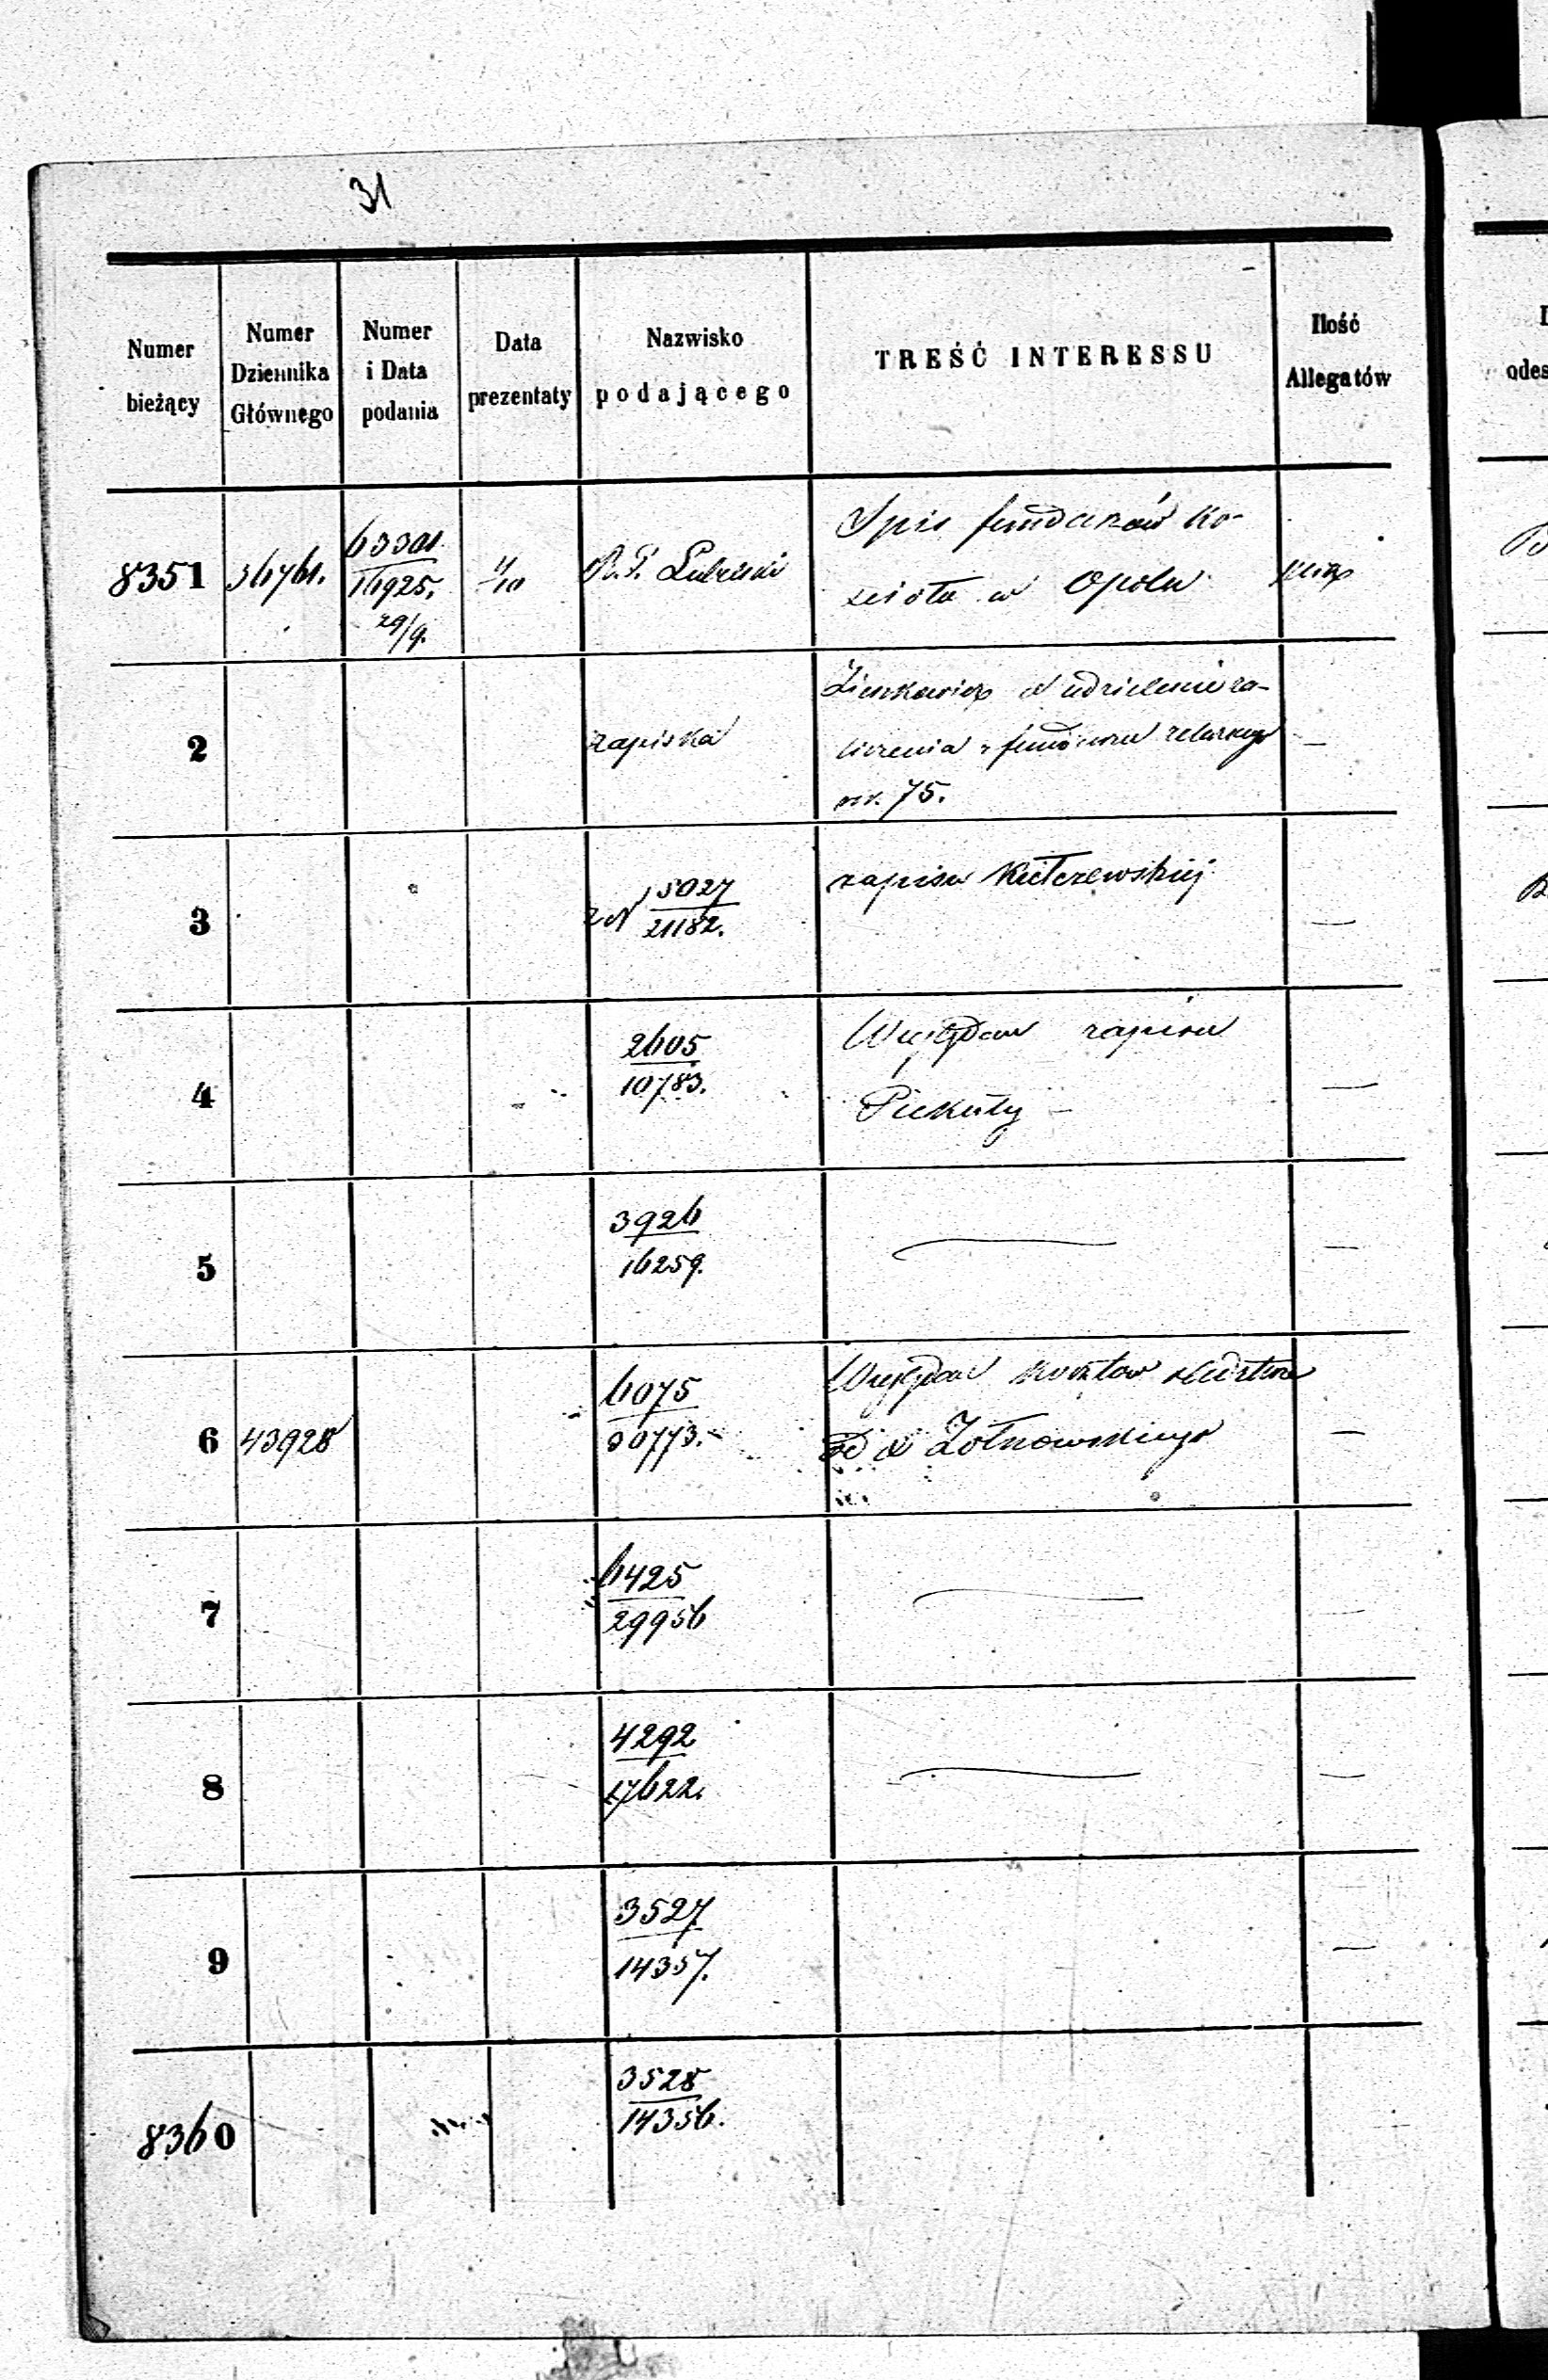 31
Numer bieżący
Numer Dziennika Głównego
Numer i Data podania
Data prezentaty
Nazwisko podającego
TREŚĆ INTERESSU
Ilość Allegatów
8351 36761. 63301. 16925. 29/9. 11/10 R. G. Lubelski
Spis funduszów ko-
ścioła w Opolu
2 zapiska
udzielenie za-
liczenia z
75.
3 z N 5027 21182. zapisu Kiełczewskiej
4 2605 10783. Względem zapisu
Piekuty
5 3926 16259.
6 43928 6075 30773. Względem kosztów
od X Żołnowskiego
7 6425 29956
8 4292 17622.
9 3527 14357.
8360 3528 14356.